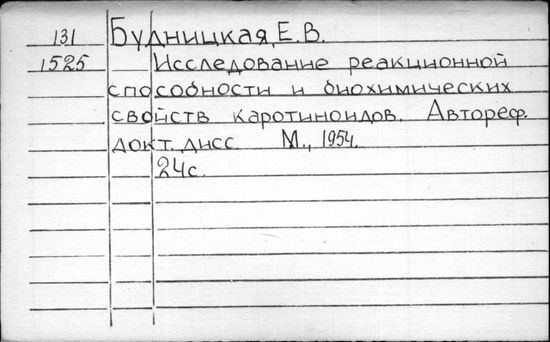 131 Будницкая, Е.В.
1525 Исследование реакционной
способности и биохимических
свойств каротиноидов. Автореф.
докт. дисс. М., 1954.
24с.